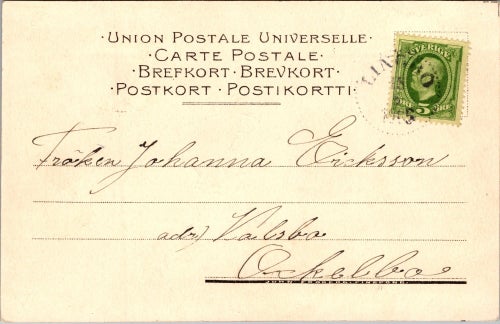 ·UNION POSTALE UNIVERSELLE·
·CARTE POSTALE·
·BREFKORT·BREVKORT·
·POSTKORT·POSTIKORTTI·
SVERIGE
ÖRE 5 ÖRE
Fröken Johanna Ericksson
adr) Valsbo
Ockelbo